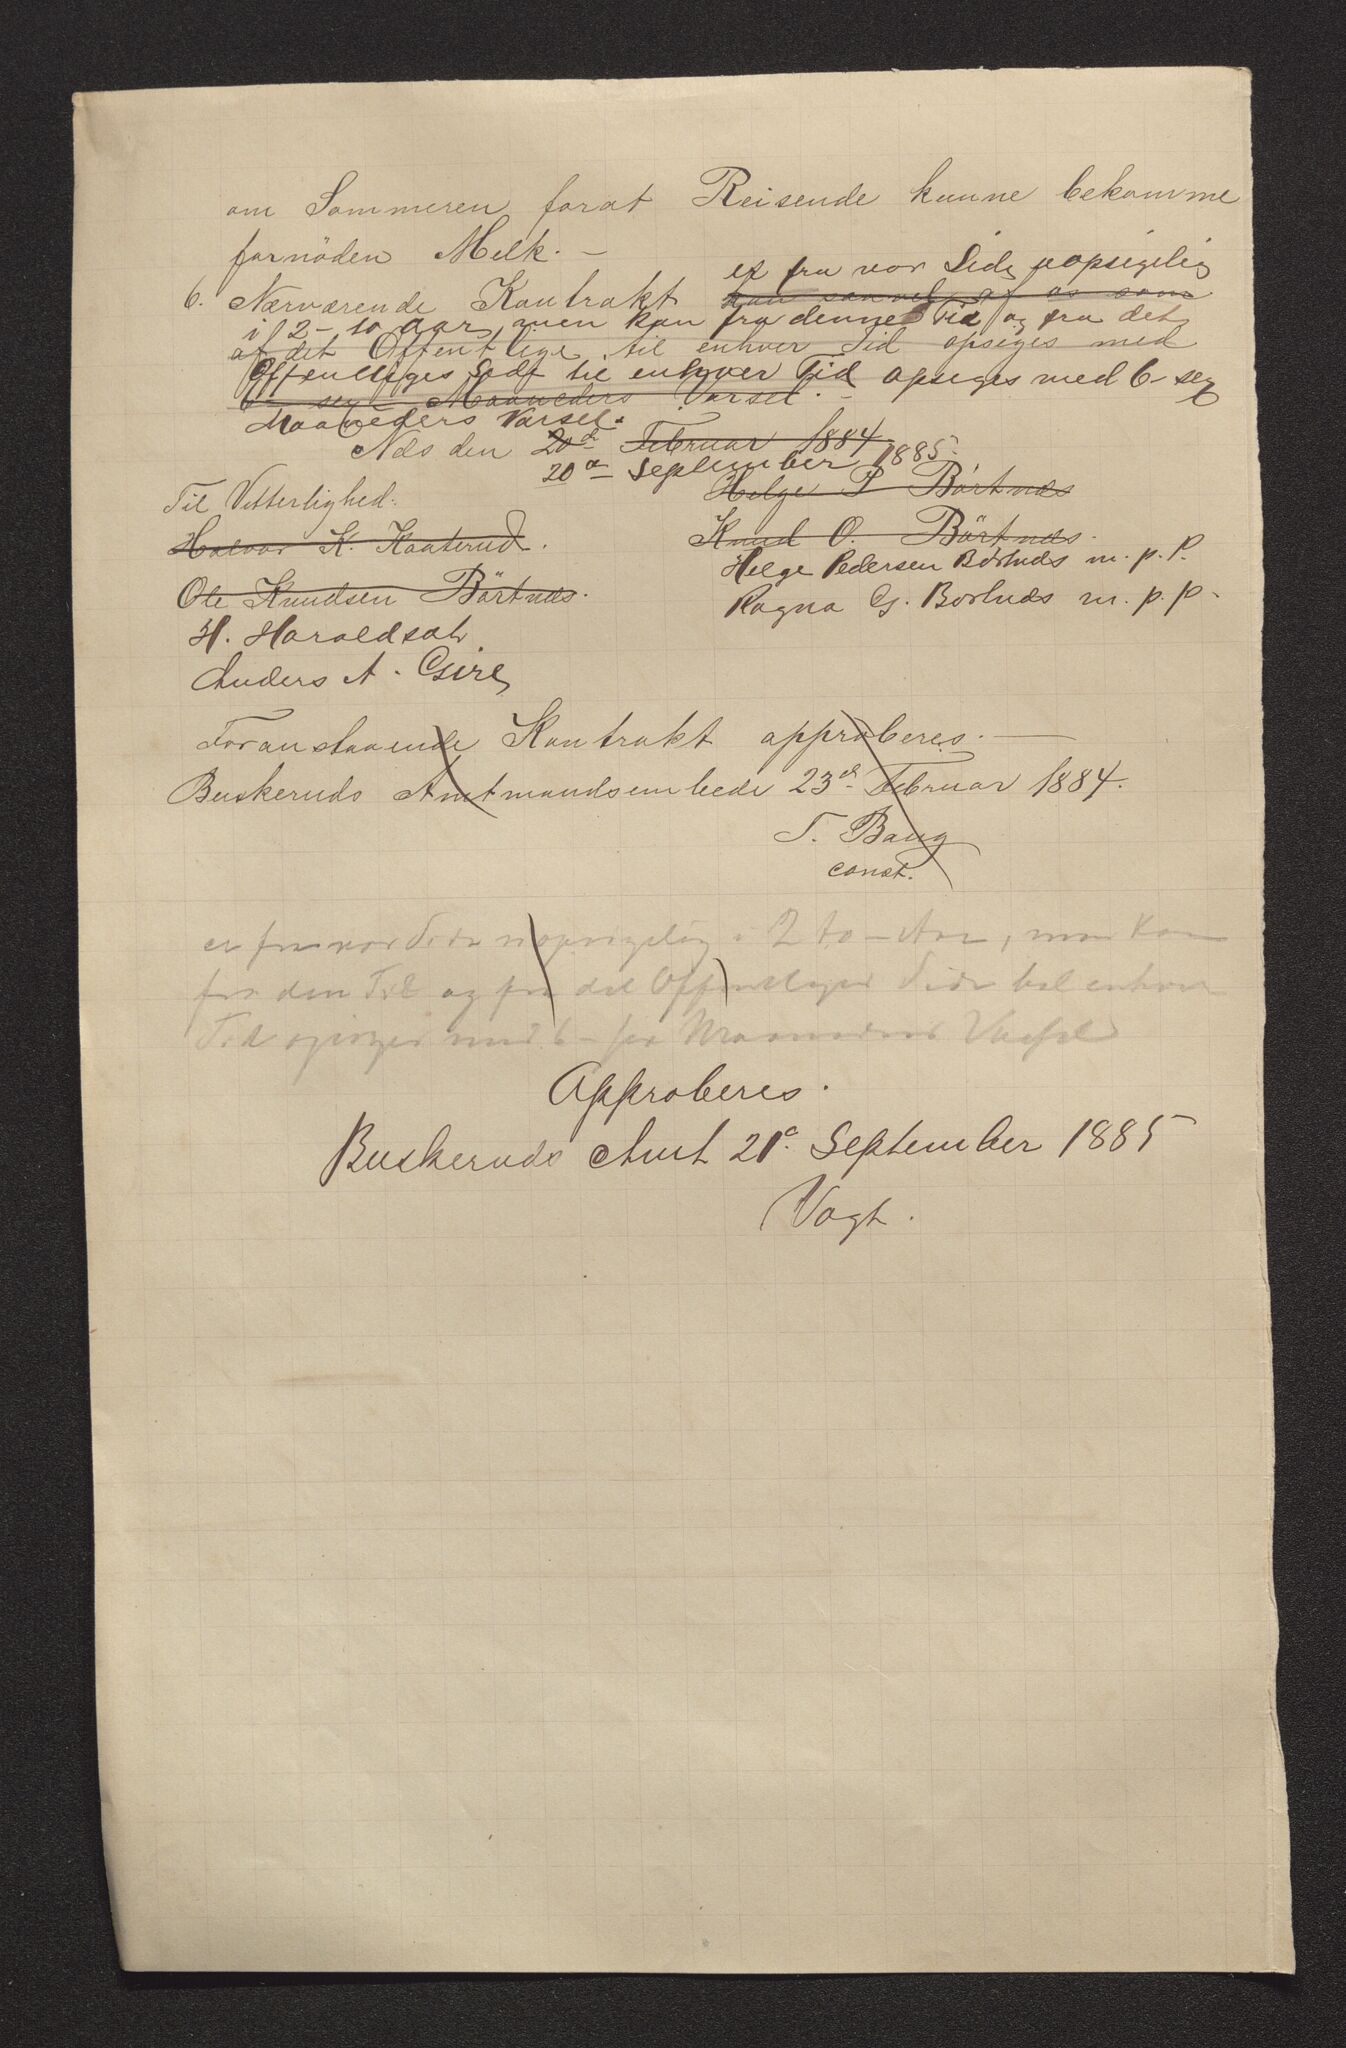 om Sommeren forat Reisende kunne bekomme
fornöden Melk. –
er fra vor Side uopsigelig
6. Nærværende Kontrakt kan saavel af os som
i 2 – to Aar, men kan fra denne Tid og fra det
af det Offentlige til enhver Tid opsiges med
Offentliges Side til enhver Tid opsiges med 6 – sex
6 – sex – Maaneders Varsel. –
Maaneders Varsel.
Næs den 20de Februar 1884
20de September 1885.
Til Vitterlighed: Helge P Börtnæs
Halvor K. Kaaterud. Knud O. Börtnæs.
Helge Pedersen Börtnæs m. p. P.
Ole Knudsen Börtnæs.
Ragna G. Börtnæs m. p. p.
H. Haroldsat
Anders A. Gire
Foranstaaende Kontrakt approberes. –
Buskeruds Amtmandsembede 23de Februar 1884.
T. Bang
const.
er fra vor Side uopsigelig i 2 to – Aar, men kan
fra den Tid og fra det Offentliges Side til enhver
Tid opsiges med 6 – sex Maaneders Varsel
Approberes.
Buskeruds Amt 21de September 1885
Vogt.